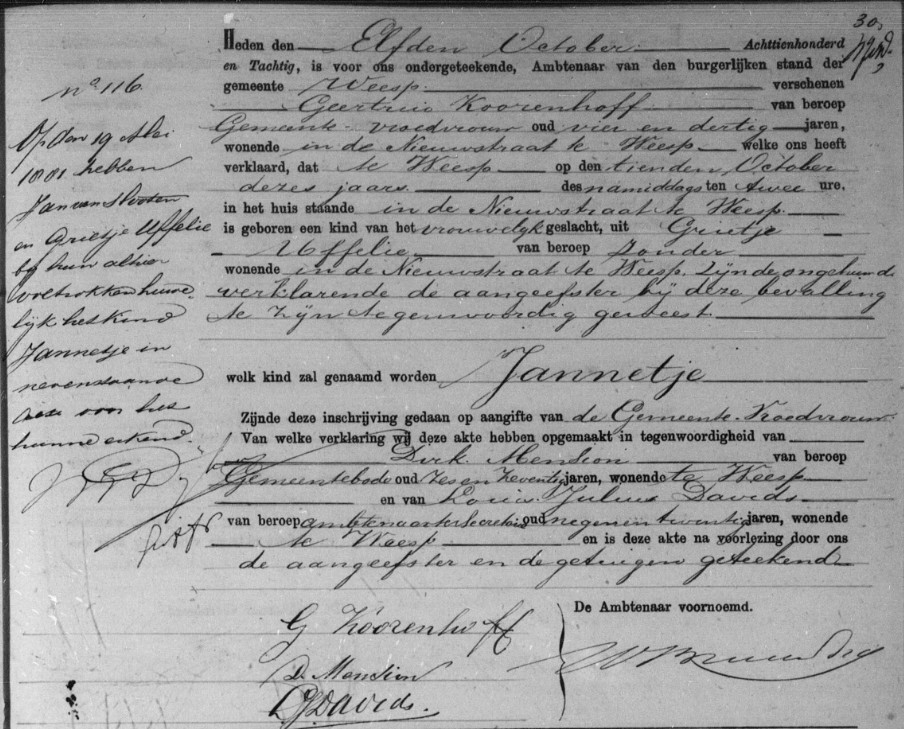 30
Heden den Elfden October Achttienhonderd
en Tachtig, is voor ons ondergeteekende, Ambtenaar van den burgerlijken stand der
gemeente Weesp verschenen
Geertrui Koorenhoff van beroep
Gemeente-vroedvrouw oud vier en dertig jaren,
wonende in de Nieuwstraat te Weesp welke ons heeft
verklaard, dat te Weesp op den tienden October
dezes jaars des namiddags ten twee ure,
in het huis staande in de Nieuwstraat te Weesp
is geboren een kind van het vrouwelijk geslacht, uit Grietje
Uffelie van beroep zonder
wonende in de Nieuwstraat te Weesp, zijnde ongehuwd
verklarende de aangeefster bij deze bevalling
te zijn tegenwoordig geweest.
welk kind zal genaamd worden Jannetje
Zijnde deze inschrijving gedaan op aangifte van de Gemeente-Vroedvrouw
Van welke verklaring wij deze akte hebben opgemaakt in tegenwoordigheid van
Dirk Mension van beroep
Gemeentebode oud zes en zeventig jaren, wonende te Weesp
en van Louis Julius Davids
van beroep ambtenaar ter secretarie oud negenentwintig jaren, wonende
te Weesp en is deze akte na voorlezing door ons
de aangeefster en de getuigen geteekend
De Ambtenaar voornoemd.
G Koorenhoff
D. Mension
LJDavids.
no 116.
Op den 19 Mei
1881 hebben
Jan van Slooten
en Grietje Uffelie
bij hun alhier
voltrokken huwe-
lijk het kind
Jannetje in
nevenstaande
acte voor het
hunne erkend.